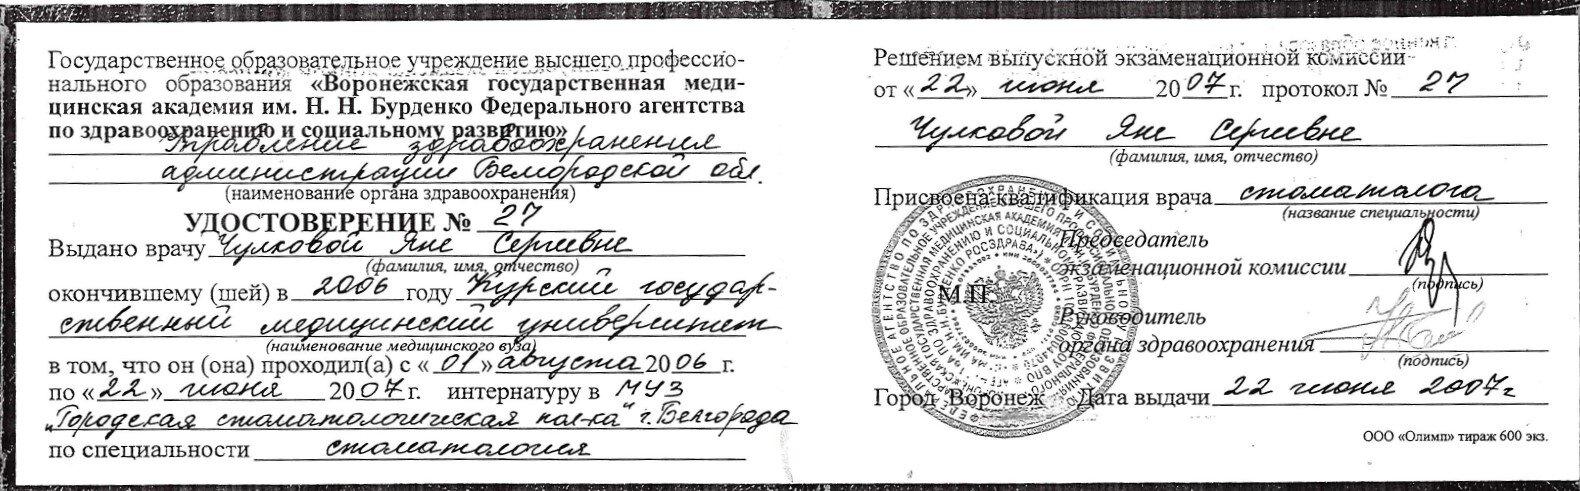 Государственное образовательное учреждение высшего професси-
нального образования «Воронежская государственная меди-
цинская академия им. Н. Н. Бурденко Федерального агентства
по здравоохранению и социальному развитию»
Управление здравоохранения
администрации Белгородской обл.
(наименование органа здравоохранения)
УДОСТОВЕРЕНИЕ № 27
Выдано врачу Чулковой Яне Сергеевне
(фамилия, имя, отчество)
окончившему (шей) в 2006 году Курский государ-
ственный медицинский университет
(наименование медицинского вуза)
в том, что он (она) проходил(а) с «01» августа 2006 г.
по «22» июня 2007 г. интернатуру в МУЗ
"Городская стоматологическая пол-ка" г. Белгорода
по специальности стоматология
Решением выпускной экзаменационной комиссии
от «22» июня 2007 г. протокол № 27
Чулковой Яне Сергеевне
(фамилия, имя, отчество)
Присвоена квалификация врача стоматолога
(название специальности)
Председатель
экзаменационной комиссии
(подпись)
М.П.
Руководитель
органа здравоохранения
(подпись)
Город Воронеж Дата выдачи 22 июня 2007г
ООО «Олимп» тираж 600 экз.